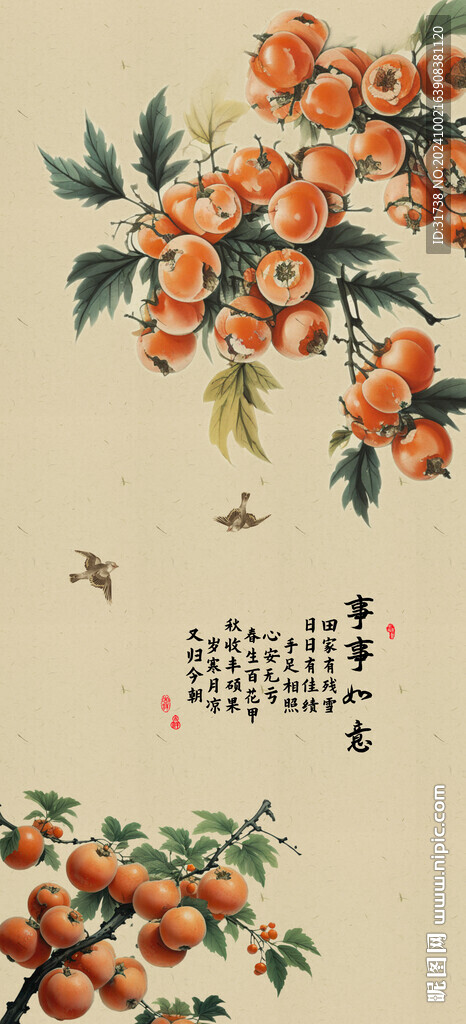 事事如意
田家有残雪
日日有佳绩
手足相照
心安无亏
春生百花甲
秋收丰硕果
岁寒月凉
又归今朝
ID:31738 NO:20241002163908381120
昵图网 www.nipic.com